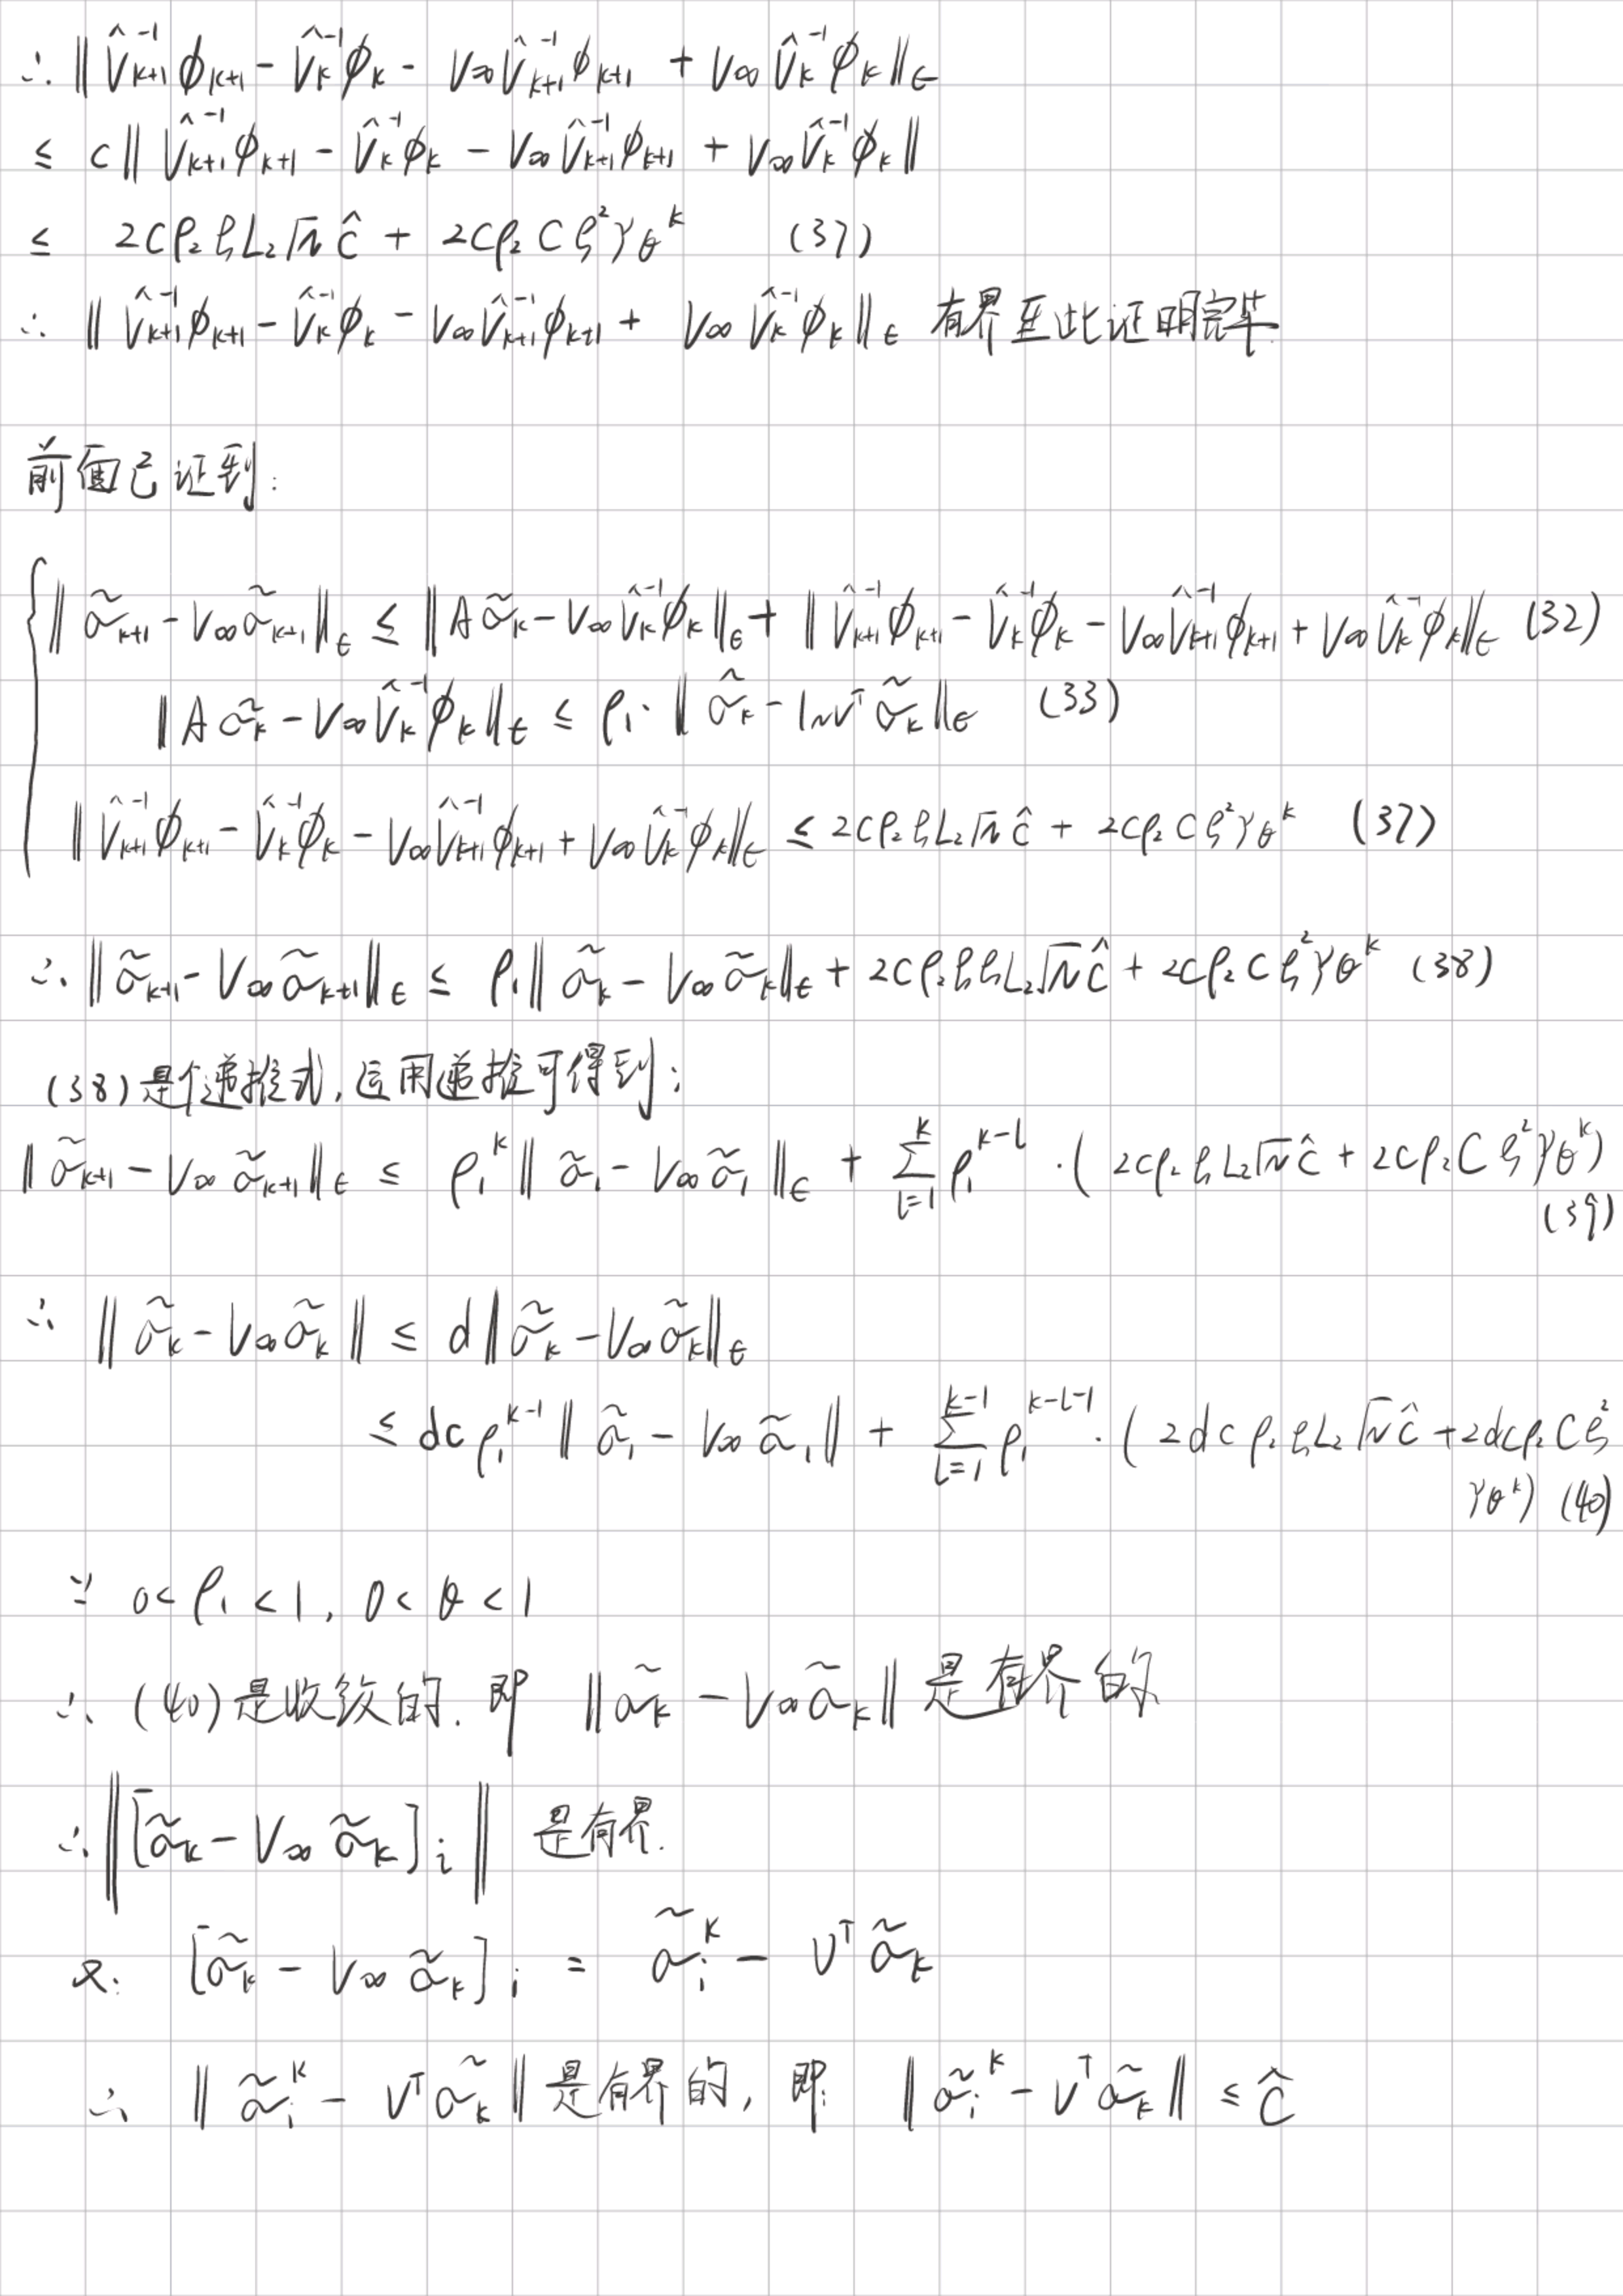 ∴ ‖V̂ₖ₊₁⁻¹ϕₖ₊₁ − V̂ₖ⁻¹ϕₖ − V∞V̂ₖ₊₁⁻¹ϕₖ₊₁ + V∞V̂ₖ⁻¹ϕₖ‖_ϵ
≤ c‖V̂ₖ₊₁⁻¹ϕₖ₊₁ − V̂ₖ⁻¹ϕₖ − V∞V̂ₖ₊₁⁻¹ϕₖ₊₁ + V∞V̂ₖ⁻¹ϕₖ‖
≤ 2cρ₂ξL₂√n ĉ + 2cρ₂Cξ²γθᵏ (37)
∴ ‖V̂ₖ₊₁⁻¹ϕₖ₊₁ − V̂ₖ⁻¹ϕₖ − V∞V̂ₖ₊₁⁻¹ϕₖ₊₁ + V∞V̂ₖ⁻¹ϕₖ‖_ϵ 有界至此证明完毕.
前面已证到:
{ ‖α̃ₖ₊₁ − V∞α̃ₖ₊₁‖_ϵ ≤ ‖Aα̃ₖ − V∞V̂ₖ⁻¹ϕₖ‖_ϵ + ‖V̂ₖ₊₁⁻¹ϕₖ₊₁ − V̂ₖ⁻¹ϕₖ − V∞V̂ₖ₊₁⁻¹ϕₖ₊₁ + V∞V̂ₖ⁻¹ϕₖ‖_ϵ (32)
‖Aα̃ₖ − V∞V̂ₖ⁻¹ϕₖ‖_ϵ ≤ ρ₁·‖α̃ₖ − 1_N vᵀα̃ₖ‖_ϵ (33)
‖V̂ₖ₊₁⁻¹ϕₖ₊₁ − V̂ₖ⁻¹ϕₖ − V∞V̂ₖ₊₁⁻¹ϕₖ₊₁ + V∞V̂ₖ⁻¹ϕₖ‖_ϵ ≤ 2cρ₂ξL₂√n ĉ + 2cρ₂Cξ²γθᵏ (37)
∴ ‖α̃ₖ₊₁ − V∞α̃ₖ₊₁‖_ϵ ≤ ρ₁‖α̃ₖ − V∞α̃ₖ‖_ϵ + 2cρ₂ξξL₂√N ĉ + 2cρ₂Cξ²γθᵏ (38)
(38)是个递推式,运用递推可得到:
‖α̃ₖ₊₁ − V∞α̃ₖ₊₁‖_ϵ ≤ ρ₁ᵏ‖α̃₁ − V∞α̃₁‖_ϵ + ∑_{l=1}^{k} ρ₁^{k−l}·(2cρ₂ξL₂√N ĉ + 2cρ₂Cξ²γθᵏ)
(39)
∴ ‖α̃ₖ − V∞α̃ₖ‖ ≤ d‖α̃ₖ − V∞α̃ₖ‖_ϵ
≤ dcρ₁^{k−1}‖α̃₁ − V∞α̃₁‖ + ∑_{l=1}^{k−1} ρ₁^{k−l−1}·(2dcρ₂ξL₂√N ĉ + 2dcρ₂Cξ²
γθᵏ) (40)
∵ 0<ρ₁<1, 0<θ<1
∴ (40)是收敛的. 即 ‖α̃ₖ − V∞α̃ₖ‖ 是有界的
∴ ‖[α̃ₖ − V∞α̃ₖ]ᵢ‖ 是有界.
又: [α̃ₖ − V∞α̃ₖ]ᵢ = α̃ᵢᵏ − vᵀα̃ₖ
∴ ‖α̃ᵢᵏ − vᵀα̃ₖ‖ 是有界的, 即: ‖α̃ᵢᵏ − vᵀα̃ₖ‖ ≤ ĉ